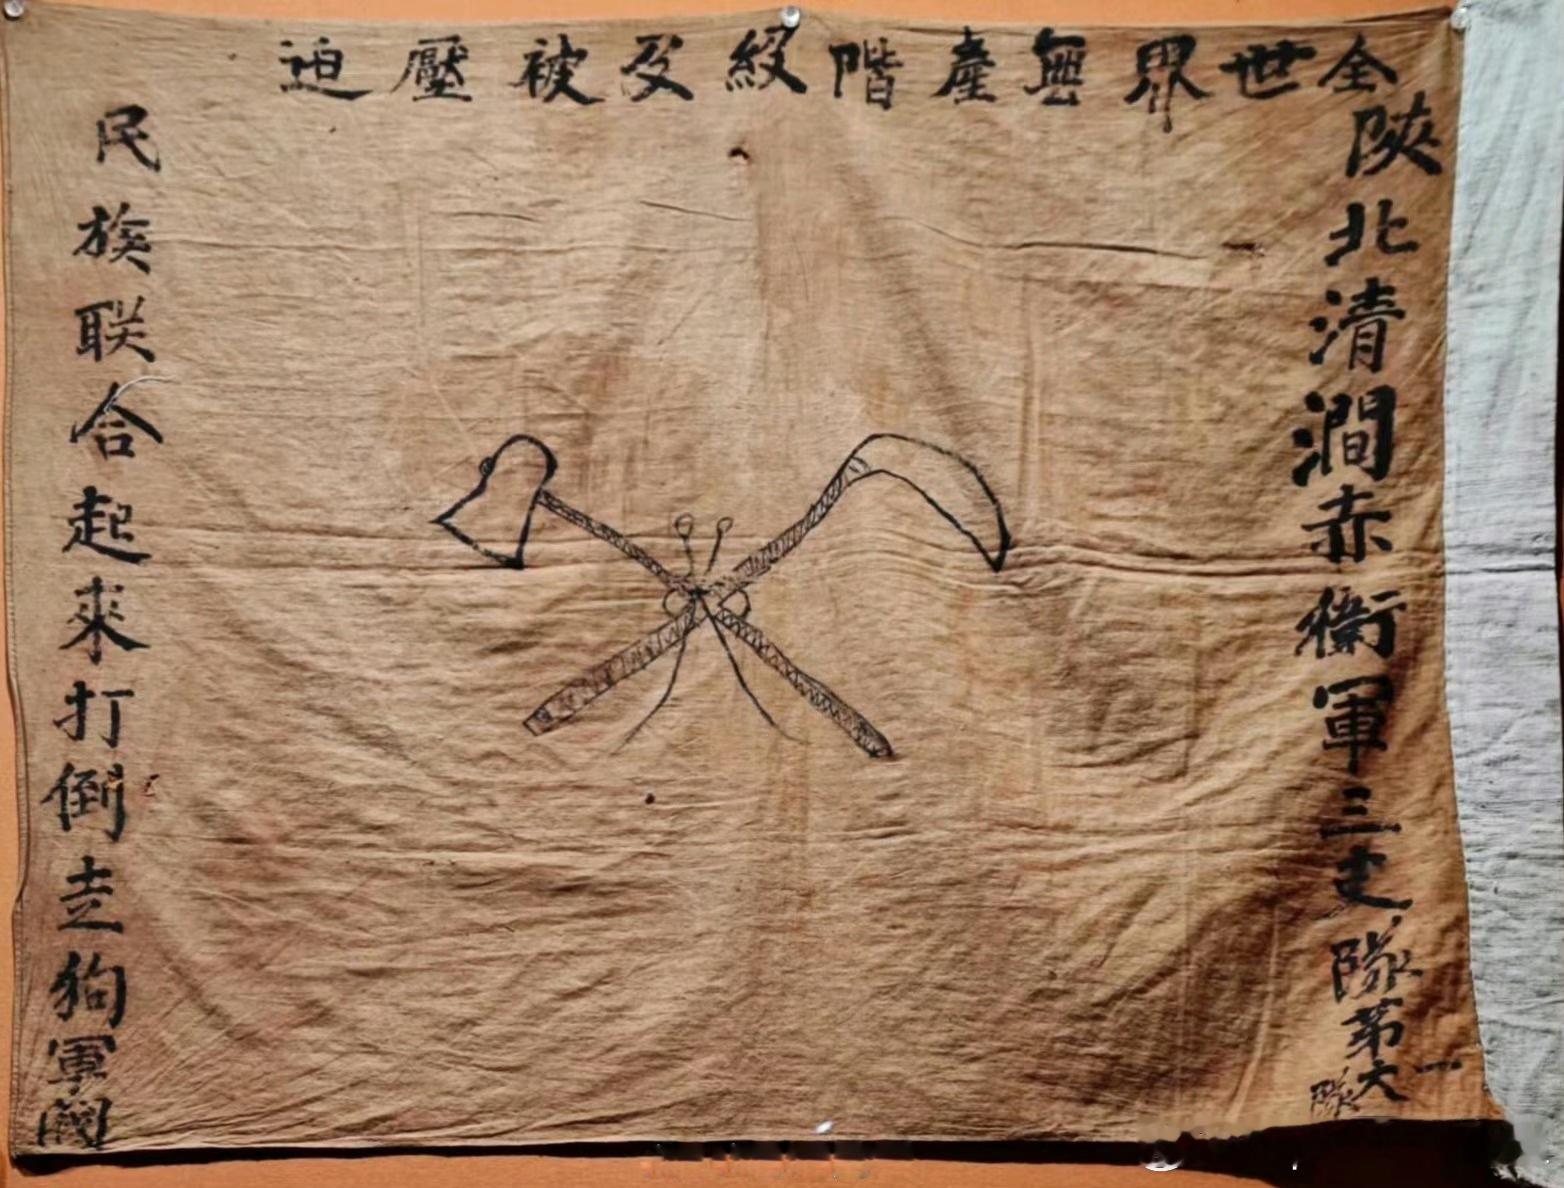 陝北清澗赤衛軍三支隊第一大隊
全世界無產階級及被壓迫
民族联合起來打倒走狗軍閥